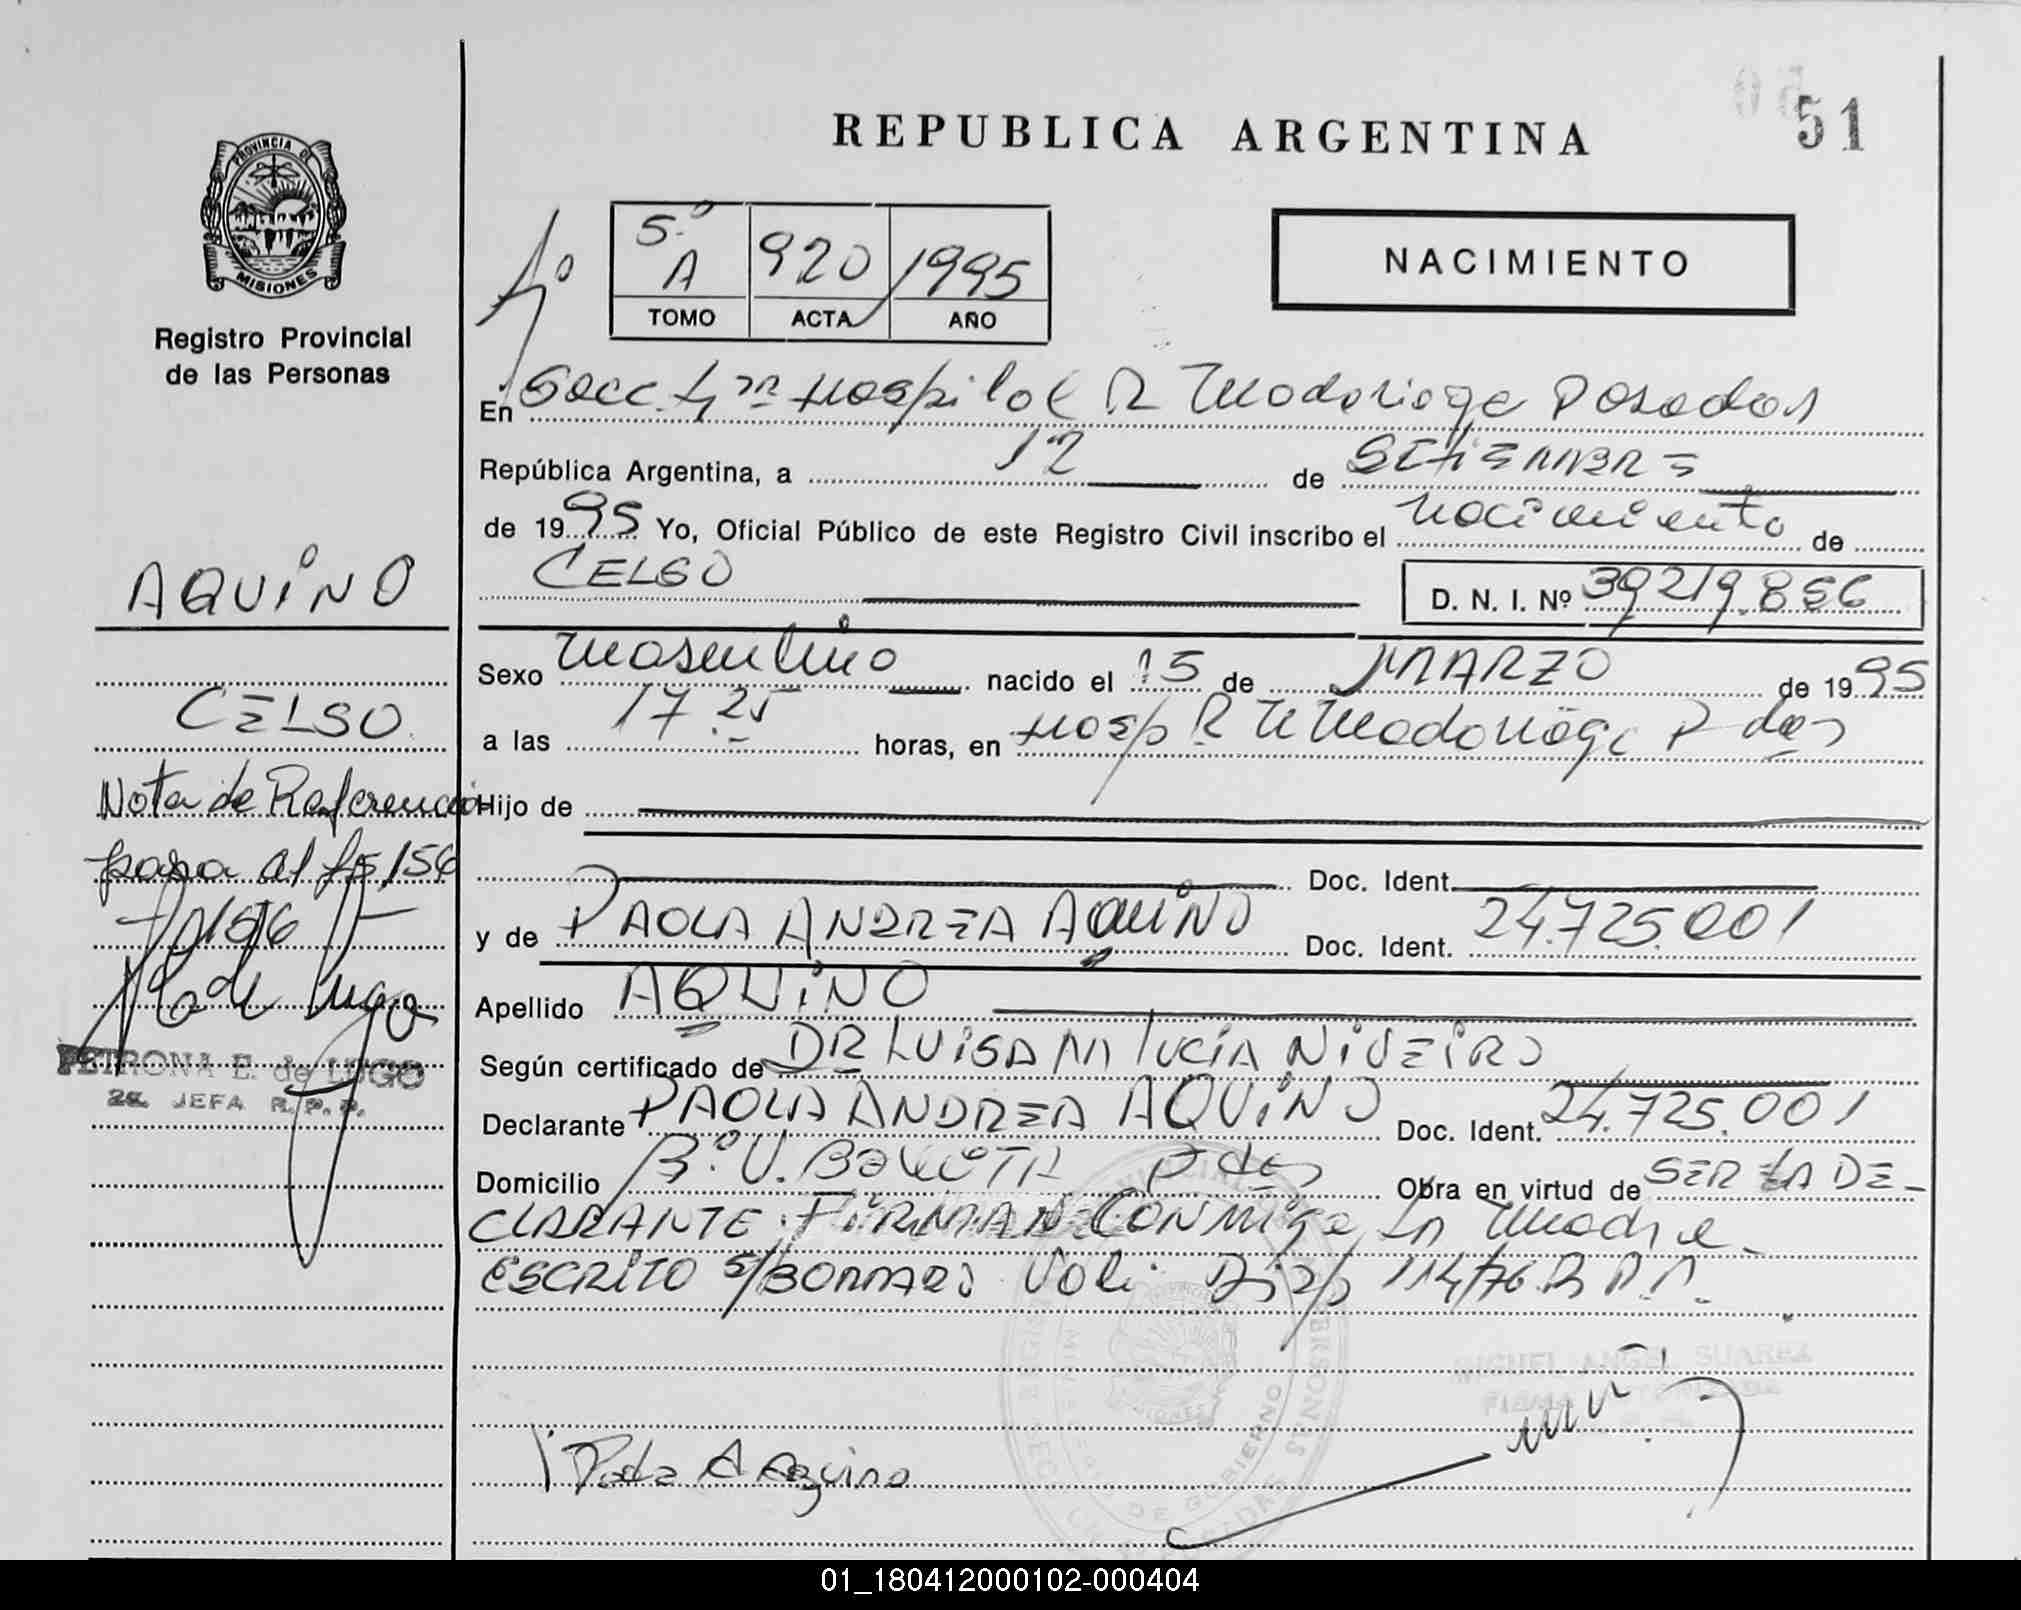 51
REPUBLICA ARGENTINA
PROVINCIA DE
MISIONES
Registro Provincial
de las Personas
5º A 920 1995
TOMO ACTA AÑO
NACIMIENTO
En Secc. Hospital R Madariaga Posadas
República Argentina, a 12 de SETIEMBRE
de 1995 Yo, Oficial Público de este Registro Civil inscribo el nacimiento de
CELSO D. N. I. Nº 39219.856
AQUINO
Sexo masculino nacido el 15 de MARZO de 1995
CELSO
a las 17.25 horas, en Hosp R Madariaga Pdas
Nota de Referencia
Hijo de
pasa al fs 156
Doc. Ident.
y de PAOLA ANDREA AQUINO Doc. Ident. 24.725.001
Apellido AQUINO
Según certificado de DR LUISA M LUCIA NIVEIRO
PETRONA E. de LUGO
2a. JEFA R. P. P.
Declarante PAOLA ANDREA AQUINO Doc. Ident. 24.725.001
Domicilio Bº. V. Pdas Obra en virtud de SER LA DE-
CLARANTE. FIRMAN CONMIGO La Madre
ESCRITO S/BORRADO Disp 114/76. R.P.P.
MIGUEL ANGEL SUAREZ
Paola A Aquino
01_180412000102-000404